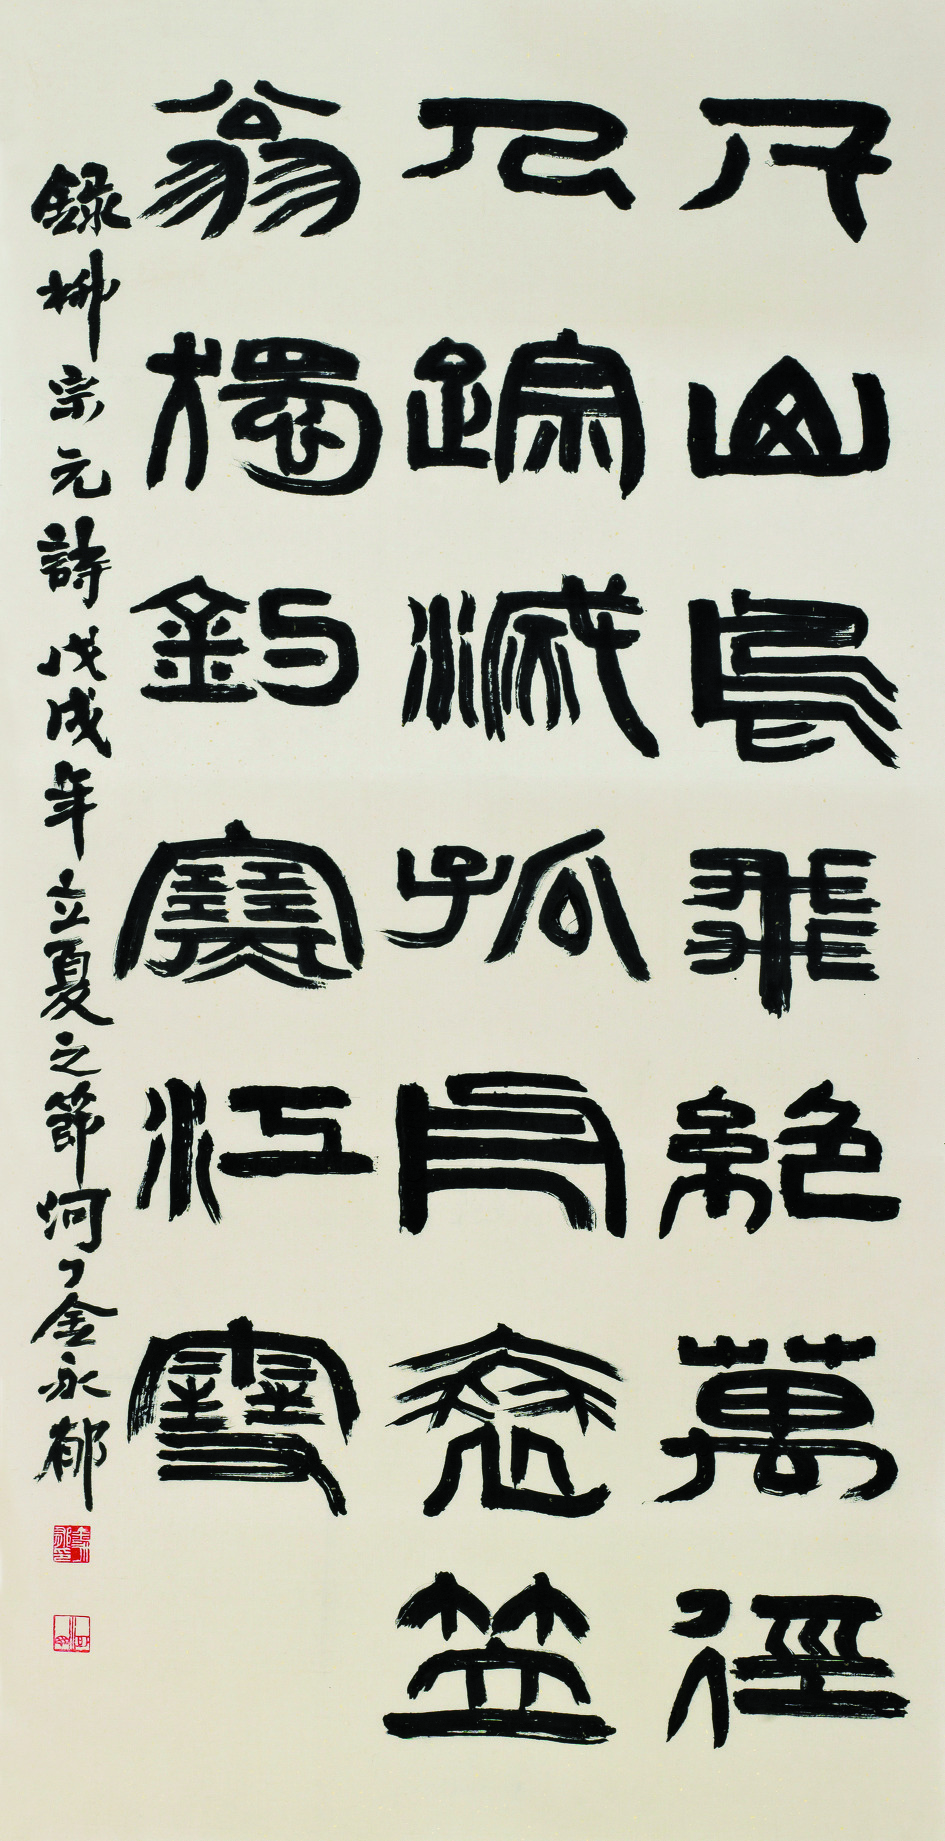 千山鳥飛絕萬徑
人踪滅孤舟蓑笠
翁獨釣寒江雪
錄柳宗元詩戊戌年立夏之節河丁金永郁